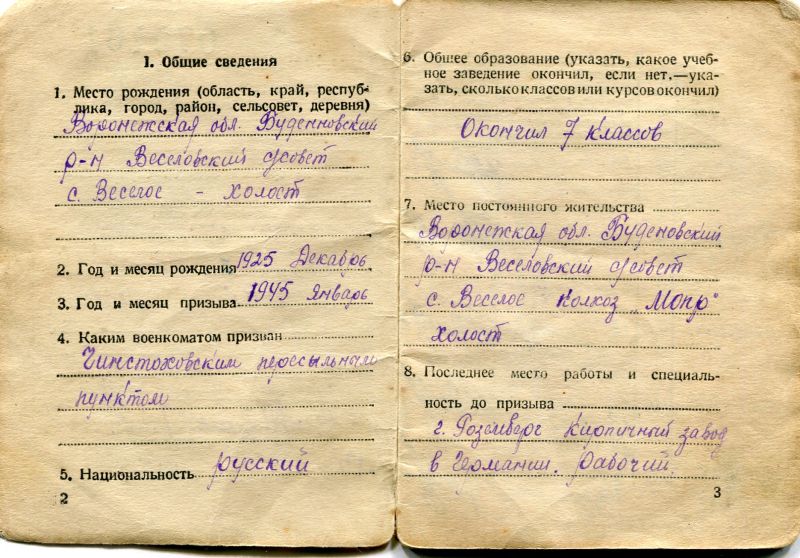 I. Общие сведения
1. Место рождения (область, край, респуб-
лика, город, район, сельсовет, деревня)
Воронежская обл. Буденновский
р-н Веселовский с/совет
с. Веселое - холост
2. Год и месяц рождения 1925 Декабрь
3. Год и месяц призыва 1945 январь
4. Каким военкоматом призван
Чинстоховским пересыльным
пунктом
5. Национальность русский
2
6. Общее образование (указать, какое учеб-
ное заведение окончил, если нет,—ука-
зать, сколько классов или курсов окончил)
Окончил 7 классов
7. Место постоянного жительства
Воронежская обл. Буденовский
р-н Веселовский с/совет
с. Веселое колхоз „Мопр"
холост
8. Последнее место работы и специаль-
ность до призыва
г. Роземберг кирпичный завод
в Германии. рабочий.
3